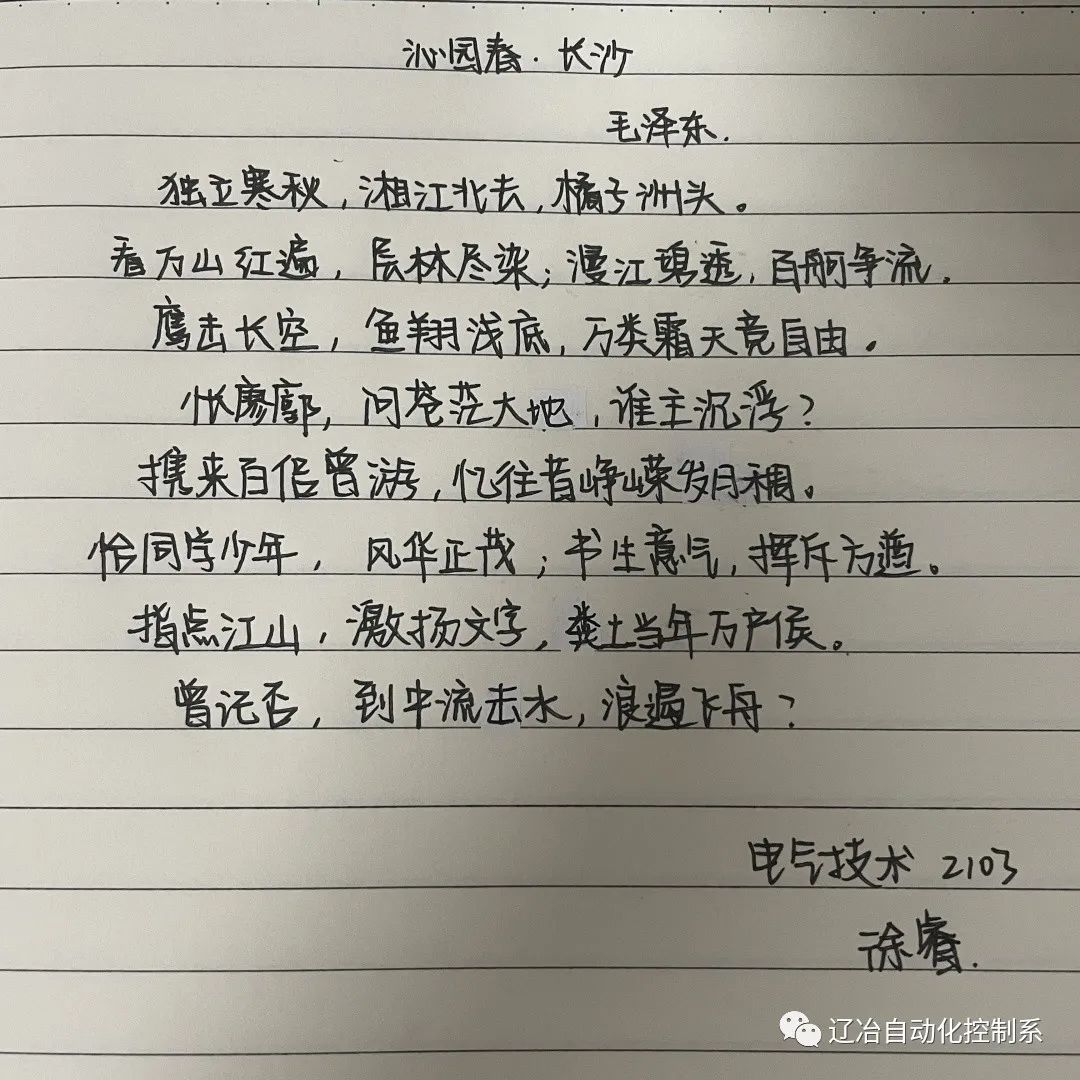 沁园春·长沙
毛泽东.
独立寒秋,湘江北去,橘子洲头。
看万山红遍,层林尽染;漫江碧透,百舸争流.
鹰击长空,鱼翔浅底,万类霜天竞自由。
怅廖廓,问苍茫大地,谁主沉浮?
携来百侣曾游,忆往昔峥嵘岁月稠。
恰同学少年,风华正茂;书生意气,挥斥方遒。
指点江山,激扬文字,粪土当年万户侯。
曾记否,到中流击水,浪遏飞舟?
电气技术 2103
徐睿.
辽冶自动化控制系